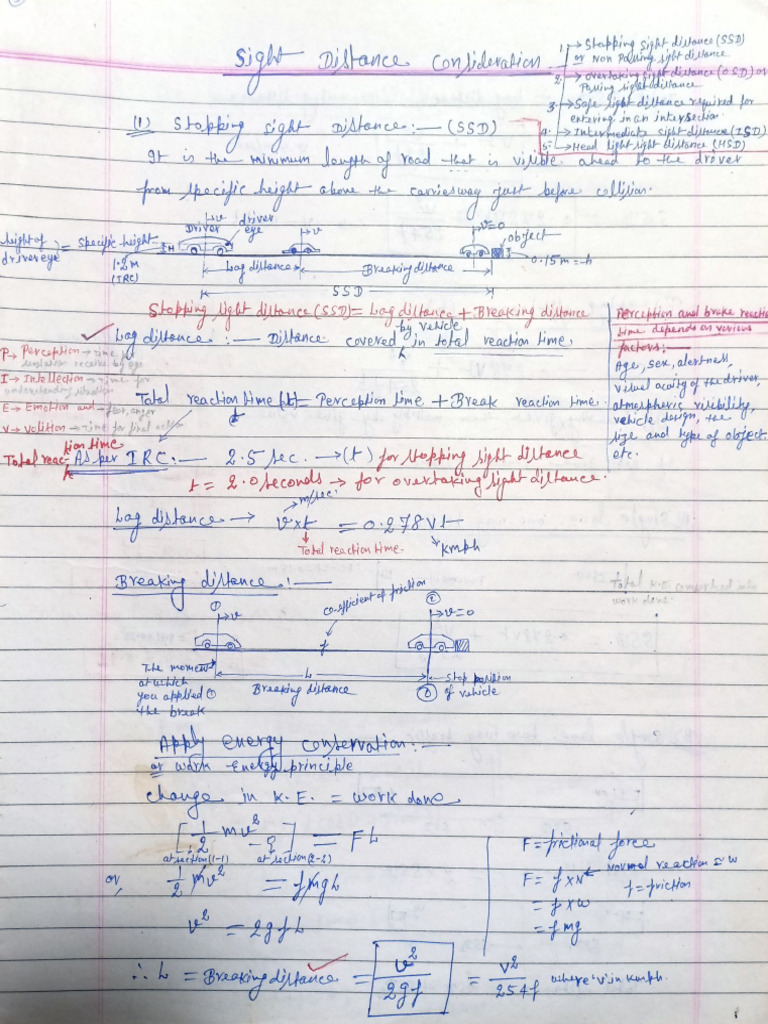 Sight Distance Consideration
1. → Stopping sight distance (SSD)
or Non Passing sight distance
2. → overtaking sight distance (OSD) or
Passing sight distance
3. → Safe sight distance required for
entering in an intersection
4. → Intermediate sight distance (ISD)
5. → Head light sight distance (HSD)
(1) Stopping sight Distance:— (SSD)
It is the minimum length of road that is visible ahead to the driver
from specific height above the carriesway just before collision.
height of
driver eye
= specific height
1.2m
(IRC)
H
Driver
→v
driver
eye
→v
v=0
object
0.15m = h
Lag distance
Breaking distance
SSD
Stopping sight distance (SSD) = Lag distance + Breaking distance
Lag distance :— Distance covered by vehicle in total reaction time
Perception and brake reaction
time depends on various
factors:—
Age, sex, alertness,
visual acuity of the driver,
atmospheric visibility,
vehicle design, the
size and type of object
etc.
P → Perception → time for
I → Intellection → time for
understanding situation
E → Emotion and → fear, anger
V → Volition → time for final action
Total reaction time (t) = Perception time + Break reaction time
Total reaction time
As per IRC :— 2.5 sec. → (t) for stopping sight distance
t = 2.0 seconds → for overtaking sight distance.
Lag distance → v×t = 0.278Vt
m/sec.
Total reaction time.
Kmph
Breaking distance :—
①
→v
co-efficient of friction
f
②
→v=0
The moment
at which
you applied
the break
①
L
Breaking distance
②
Stop position
of vehicle
Apply energy conservation:—
or work Energy principle
change in K.E. = work done
[1/2 mv² - 0] = FL
at section(1-1) at section(2-2)
or, 1/2 mv² = fmgL
v² = 2gfL
∴ L = Breaking distance = v²/2gf = V²/254f where 'V' in kmph.
F = frictional force
F = f×N ← Normal reaction = W
f = friction
= f×W
= fmg